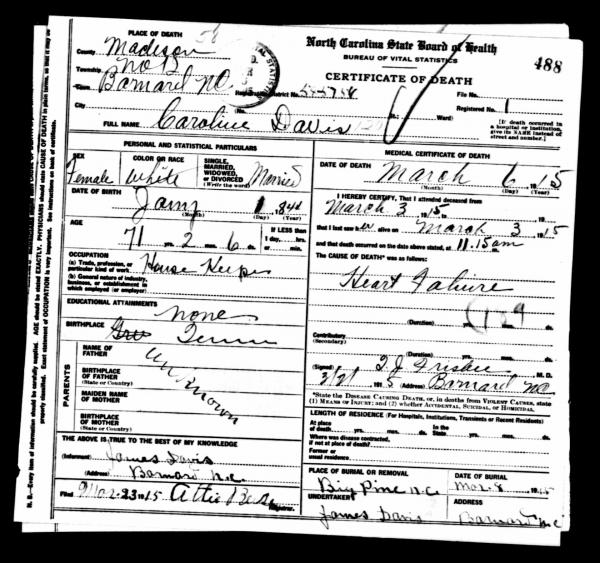 PLACE OF DEATH
County Madison
Township No 13
Town Barnard NC
Registration District No.
City
FULL NAME Caroline Davis
North Carolina State Board of Health
BUREAU OF VITAL STATISTICS
CERTIFICATE OF DEATH
488
File No.
Registered No. 1
St.; Ward)
[If death occurred in
a hospital or institution,
give its NAME instead of
street and number.]
PERSONAL AND STATISTICAL PARTICULARS
SEX
Female
COLOR OR RACE
White
SINGLE,
MARRIED,
WIDOWED,
or DIVORCED
(Write the word)
Married
DATE OF BIRTH
Jany 1 84
(Month) (Day) (Year)
AGE
71 yrs. 2 mos. 6 ds.
If LESS than
1 day, hrs.
or min.
OCCUPATION
(a) Trade, profession, or
particular kind of work House Keeper
(b) General nature of industry,
business, or establishment in
which employed (or employer)
EDUCATIONAL ATTAINMENTS
none
BIRTHPLACE
Tenn
PARENTS
NAME OF
FATHER
BIRTHPLACE
OF FATHER
(State or Country)
MAIDEN NAME
OF MOTHER
BIRTHPLACE
OF MOTHER
(State or Country)
unknown
THE ABOVE IS TRUE TO THE BEST OF MY KNOWLEDGE
(Informant) James Davis
(Address) Barnard N.C.
Filed Mar. 23 1915 Registrar.
MEDICAL CERTIFICATE OF DEATH
DATE OF DEATH
March 6 1915
(Month) (Day) (Year)
I HEREBY CERTIFY, That I attended deceased from
March 3 1915, 19
that I last saw her alive on March 3 1915
and that death occurred on the date above stated, at 11.15 am
The CAUSE OF DEATH* was as follows:
Heart Failure
129
(Duration) yrs. mos. ds.
Contributory
(Secondary)
(Duration) yrs. mos. ds.
(Signed) T J Frisbee M.D.
3/21 1915 (Address) Barnard NC
*State the DISEASE CAUSING DEATH, or, in deaths from VIOLENT CAUSES, state
(1) MEANS OF INJURY; and (2) whether ACCIDENTAL, SUICIDAL, or HOMICIDAL.
LENGTH OF RESIDENCE (For Hospitals, Institutions, Transients or Recent Residents)
At place of death yrs. mos. ds. In the State yrs. mos. ds.
Where was disease contracted,
if not at place of death?
Former or
usual residence
PLACE OF BURIAL OR REMOVAL
Big Pine N.C.
DATE OF BURIAL
Mar. 8 1915
UNDERTAKER
James Davis
ADDRESS
Barnard N.C.
N. B.—Every item of information should be carefully supplied. AGE should be stated EXACTLY. PHYSICIANS should state CAUSE OF DEATH in plain terms, so that it may be
properly classified. Exact statement of OCCUPATION is very important. See instructions on back of certificate.